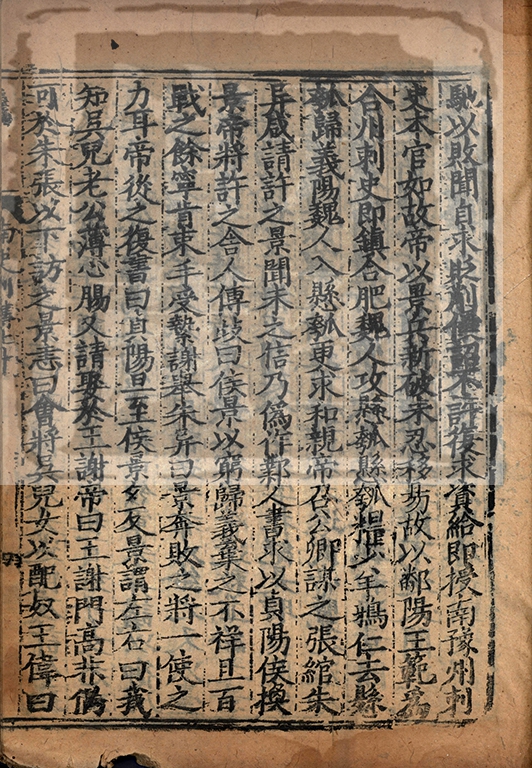 馳以敗聞自求貶削優詔不許復求資給即授南豫州刺
史本官如故帝以景兵新破未忍移易故以鄱陽王範為
合州刺史即鎮合肥魏人攻縣瓠縣瓠糧少羊鴉仁去縣
瓠歸義陽魏人入縣瓠更求和親帝召公卿謀之張綰朱
异咸請許之景聞未之信乃偽作鄴人書求以貞陽侯換
景帝將許之舍人傅歧曰侯景以窮歸義棄之不祥且百
戰之餘寧肯束手受縶謝舉朱异曰景奔敗之將一使之
力耳帝從之復書曰貞陽旦至侯景夕反景謂左右曰我
知吳兒老公薄心腸又請娶於王謝帝曰王謝門高非偶
可於朱張以下訪之景恚曰會將吳兒女以配奴王偉曰